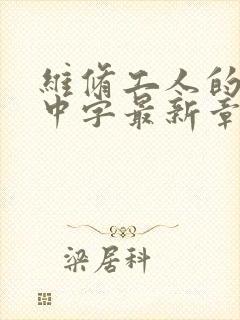 維脩工人的
中字最新章
梁居科